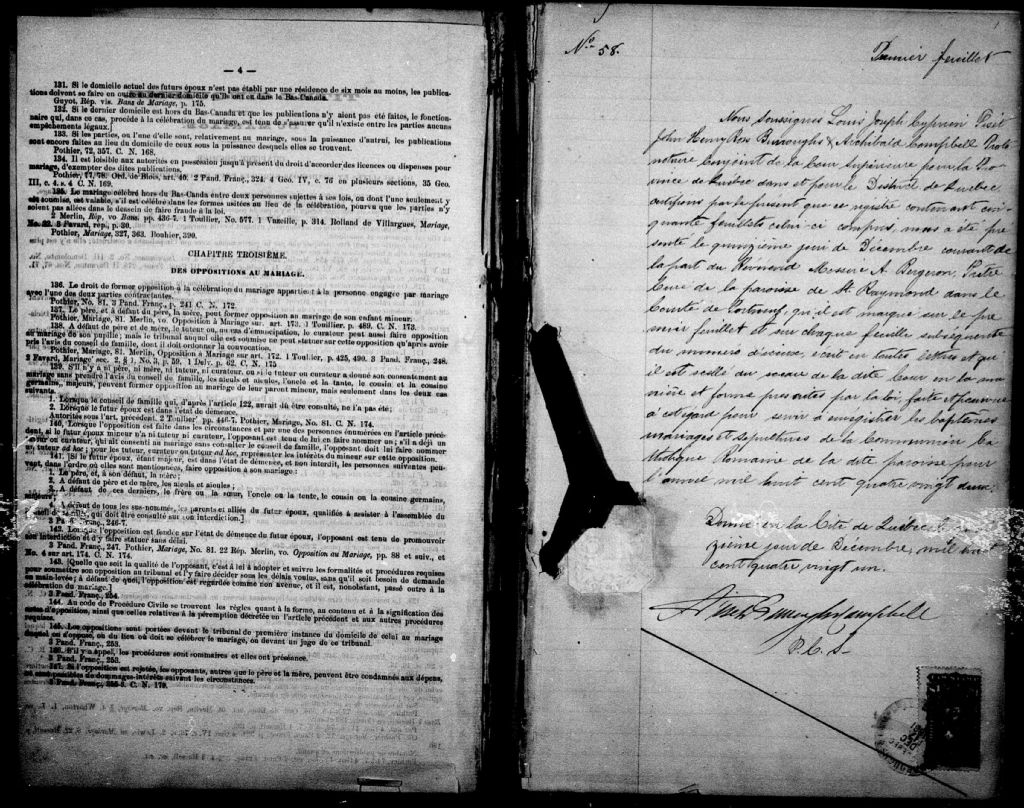 — 4 —
131. Si le domicile actuel des futurs époux n'est pas établi par une résidence de six mois au moins, les publica-
tions doivent se faire en outre au dernier domicile qu'ils ont eu dans le Bas-Canada.
Guyot, Rép. vis. Bans de Mariage, p. 175.
132. Si le dernier domicile est hors du Bas-Canada et que les publications n'y aient pas été faites, le fonction-
naire qui, dans ce cas, procède à la célébration du mariage, est tenu de s'assurer qu'il n'existe entre les parties aucuns
empêchements légaux.
133. Si les parties, ou l'une d'elle sont, relativement au mariage, sous la puissance d'autrui, les publications
sont encore faites au lieu du domicile de ceux sous la puissance desquels elles se trouvent.
Pothier, 72, 357. C. N. 168.
134. Il est loisible aux autorités en possession jusqu'à présent du droit d'accorder des licences ou dispenses pour
mariage, d'exempter des dites publications.
Pothier, 77, 78. Ord. de Blois, art. 40. 2 Pand. Franç., 324. 4 Geo. IV, c. 76 en plusieurs sections, 35 Geo.
III, c. 4, s. 4 C. N. 169.
135. Le mariage célébré hors du Bas-Canada entre deux personnes sujettes à ses lois, ou dont l'une seulement y
est soumise, est valable, s'il est célébré dans les formes usitées au lieu de la célébration, pourvu que les parties n'y
soient pas allées dans le dessein de faire fraude à la loi.
2 Merlin, Rép, vo Bans, pp. 436-7. 1 Toullier, No. 577. 1 Vazeille, p. 314. Rolland de Villargues, Mariage,
No. 5 Favard, rép., p. 30.
Pothier, Mariage, 327, 363. Bouhier, 390.
CHAPITRE TROISIÈME.
DES OPPOSITIONS AU MARIAGE.
136. Le droit de former opposition à la célébration du mariage appartient à la personne engagée par mariage
avec l'une des deux parties contractantes.
Pothier, No. 81. 3 Pand. Franç., p. 241 C. N. 172.
137. Le père, et à défaut du père, la mère, peut former opposition au mariage de son enfant mineur.
Pothier, Mariage, 81. Merlin, vo. Opposition à Mariage sur. art. 173. 1 Toullier. p. 489. C. N. 173.
138. A défaut de père et de mère, le tuteur ou, au cas d'émancipation, le curateur peut aussi faire opposition
au mariage de son pupille; mais le tribunal auquel elle est soumise ne peut statuer sur cette opposition qu'après avoir
pris l'avis du conseil de famille, dont il doit ordonner la convocation.
Pothier, Mariage, 81. Merlin, Opposition à Mariage sur art. 172. 1 Toullier, p. 425, 490. 3 Pand. Franç., 248.
2 Favard, Mariage sec. 2, § 1, No. 3, p. 59. 1 Delv., p. 62. C. N. 175
139. S'il n'y a ni père, ni mère, ni tuteur, ni curateur, ou si le tuteur ou curateur a donné son consentement au
mariage sans prendre l'avis du conseil de famille, les aïeuls et aïeules, l'oncle et la tante, le cousin et la cousine
germains, majeurs, peuvent former opposition au mariage de leur parent mineur, mais seulement dans les deux cas
suivants.
1. Lorsque le conseil de famille qui, d'après l'article 122, aurait dû être consulté, ne l'a pas été;
2. Lorsque le futur époux est dans l'état de démence.
Autorités sous l'art. précédent. 2 Toullier pp. 446-7. Pothier, Mariage, No. 81. C. N. 174.
140. Lorsque l'opposition est faite dans les circonstances et par une des personnes énumérées en l'article précé-
dent, si le futur époux mineur n'a ni tuteur ni curateur, l'opposant est tenu de lui en faire nommer un; s'il a déjà un
tuteur ou curateur, qui ait consenti au mariage sans consulter le conseil de famille, l'opposant doit lui faire nommer
un tuteur ad hoc; pour les tuteur, curateur ou tuteur ad hoc, représenter les intérêts du mineur sur cette opposition.
141. [Si le futur époux, étant majeur, est dans l'état de démence, et non interdit, les personnes suivantes peu-
vent, dans l'ordre où elles sont mentionnées, faire opposition à son mariage:
1. Le père, et, à son défaut, la mère;
2. A défaut de père et de mère, les aïeuls et aïeules;
3. A défaut de ces derniers, le frère ou la sœur, l'oncle ou la tente, le cousin ou la cousine germains,
majeurs;
4. A défaut de tous les sus-nommés, les parents et alliés du futur époux, qualifiés à assister à l'assemblée du
conseil de famille, qui doit être consulté sur son interdiction.]
3 Pand. Franç., 246-7.
142. Lorsque l'opposition est fondée sur l'état de démence du futur époux, l'opposant est tenu de promouvoir
son interdiction et d'y faire statuer sans délai.
3 Pand. Franç., 247. Pothier, Mariage, No. 81. 22 Rép. Merlin, vo. Opposition au Mariage, pp. 88 et suiv., et
No. 4 sur art. 174. C. N. 174.
143. [Quelle que soit la qualité de l'opposant, c'est à lui à adopter et suivre les formalités et procédures requises
pour soumettre son opposition au tribunal et l'y faire décider sous les délais voulus, sans qu'il soit besoin de demande
en main-levée; à défaut de quoi, l'opposition est regardée comme non avenue, et il est, nonobstant, passé outre à la
célébration du mariage.]
3 Pand. Franç., 254.
144. Au code de Procédure Civile se trouvent les règles quant à la forme, au contenu et à la signification des
actes d'opposition, ainsi que celles relatives à la péremption décrétée en l'article précédent et aux autres procédures
requises.
145. Les oppositions sont portées devant le tribunal de première instance du domicile de celui au mariage
duquel on s'oppose, ou du lieu où doit se célébrer le mariage, ou devant un juge de ce tribunal.
3 Pand. Franç., 253.
146. S'il y a appel, les procédures sont sommaires et elles ont préséance.
3 Pand. Franç., 253.
147. Si l'opposition est rejetée, les opposants, autres que le père et la mère, peuvent être condamnés aux dépens,
et sont passibles de dommages-intérêts suivant les circonstances.
3 Pand. Franç., C. N. 179.
No. 58.
Premier feuillet
Nous, Soussignés Louis Joseph Cyprien Fiset
John Henry Ross Burroughs & Archibald Campbell Proto
notaire Conjoint de la Cour Supérieure pour la Pro
vince de Québec dans et pour le District de Québec
certifions par le présent que ce registre contenant cin
quante feuillets celui-ci compris, nous a été pré
senté le quinzième jour de Décembre courant de
la part du Révérend Messire A. Bergeron, Prêtre
Curé de la paroisse de St Raymond dans le
Comté de Portneuf, qu'il est marqué sur le pre
mier feuillet et sur chaque feuillet subséquent
du numéro d'icelui, écrit en toutes lettres et qu
il est scellé du sceau de la dite Cour en la ma
nière et forme prescrites par la loi, faite et pourvue
à cet égard pour servir à enregistrer les baptêmes
mariages et sépultures de la Communion Ca
tholique Romaine de la dite paroisse pour
l'année mil huit cent quatre vingt deux.
Donné en la Cité de Québec le
zième jour de Décembre, mil huit
cent quatre vingt un.
Fiset Burroughs Campbell
P. C. S.